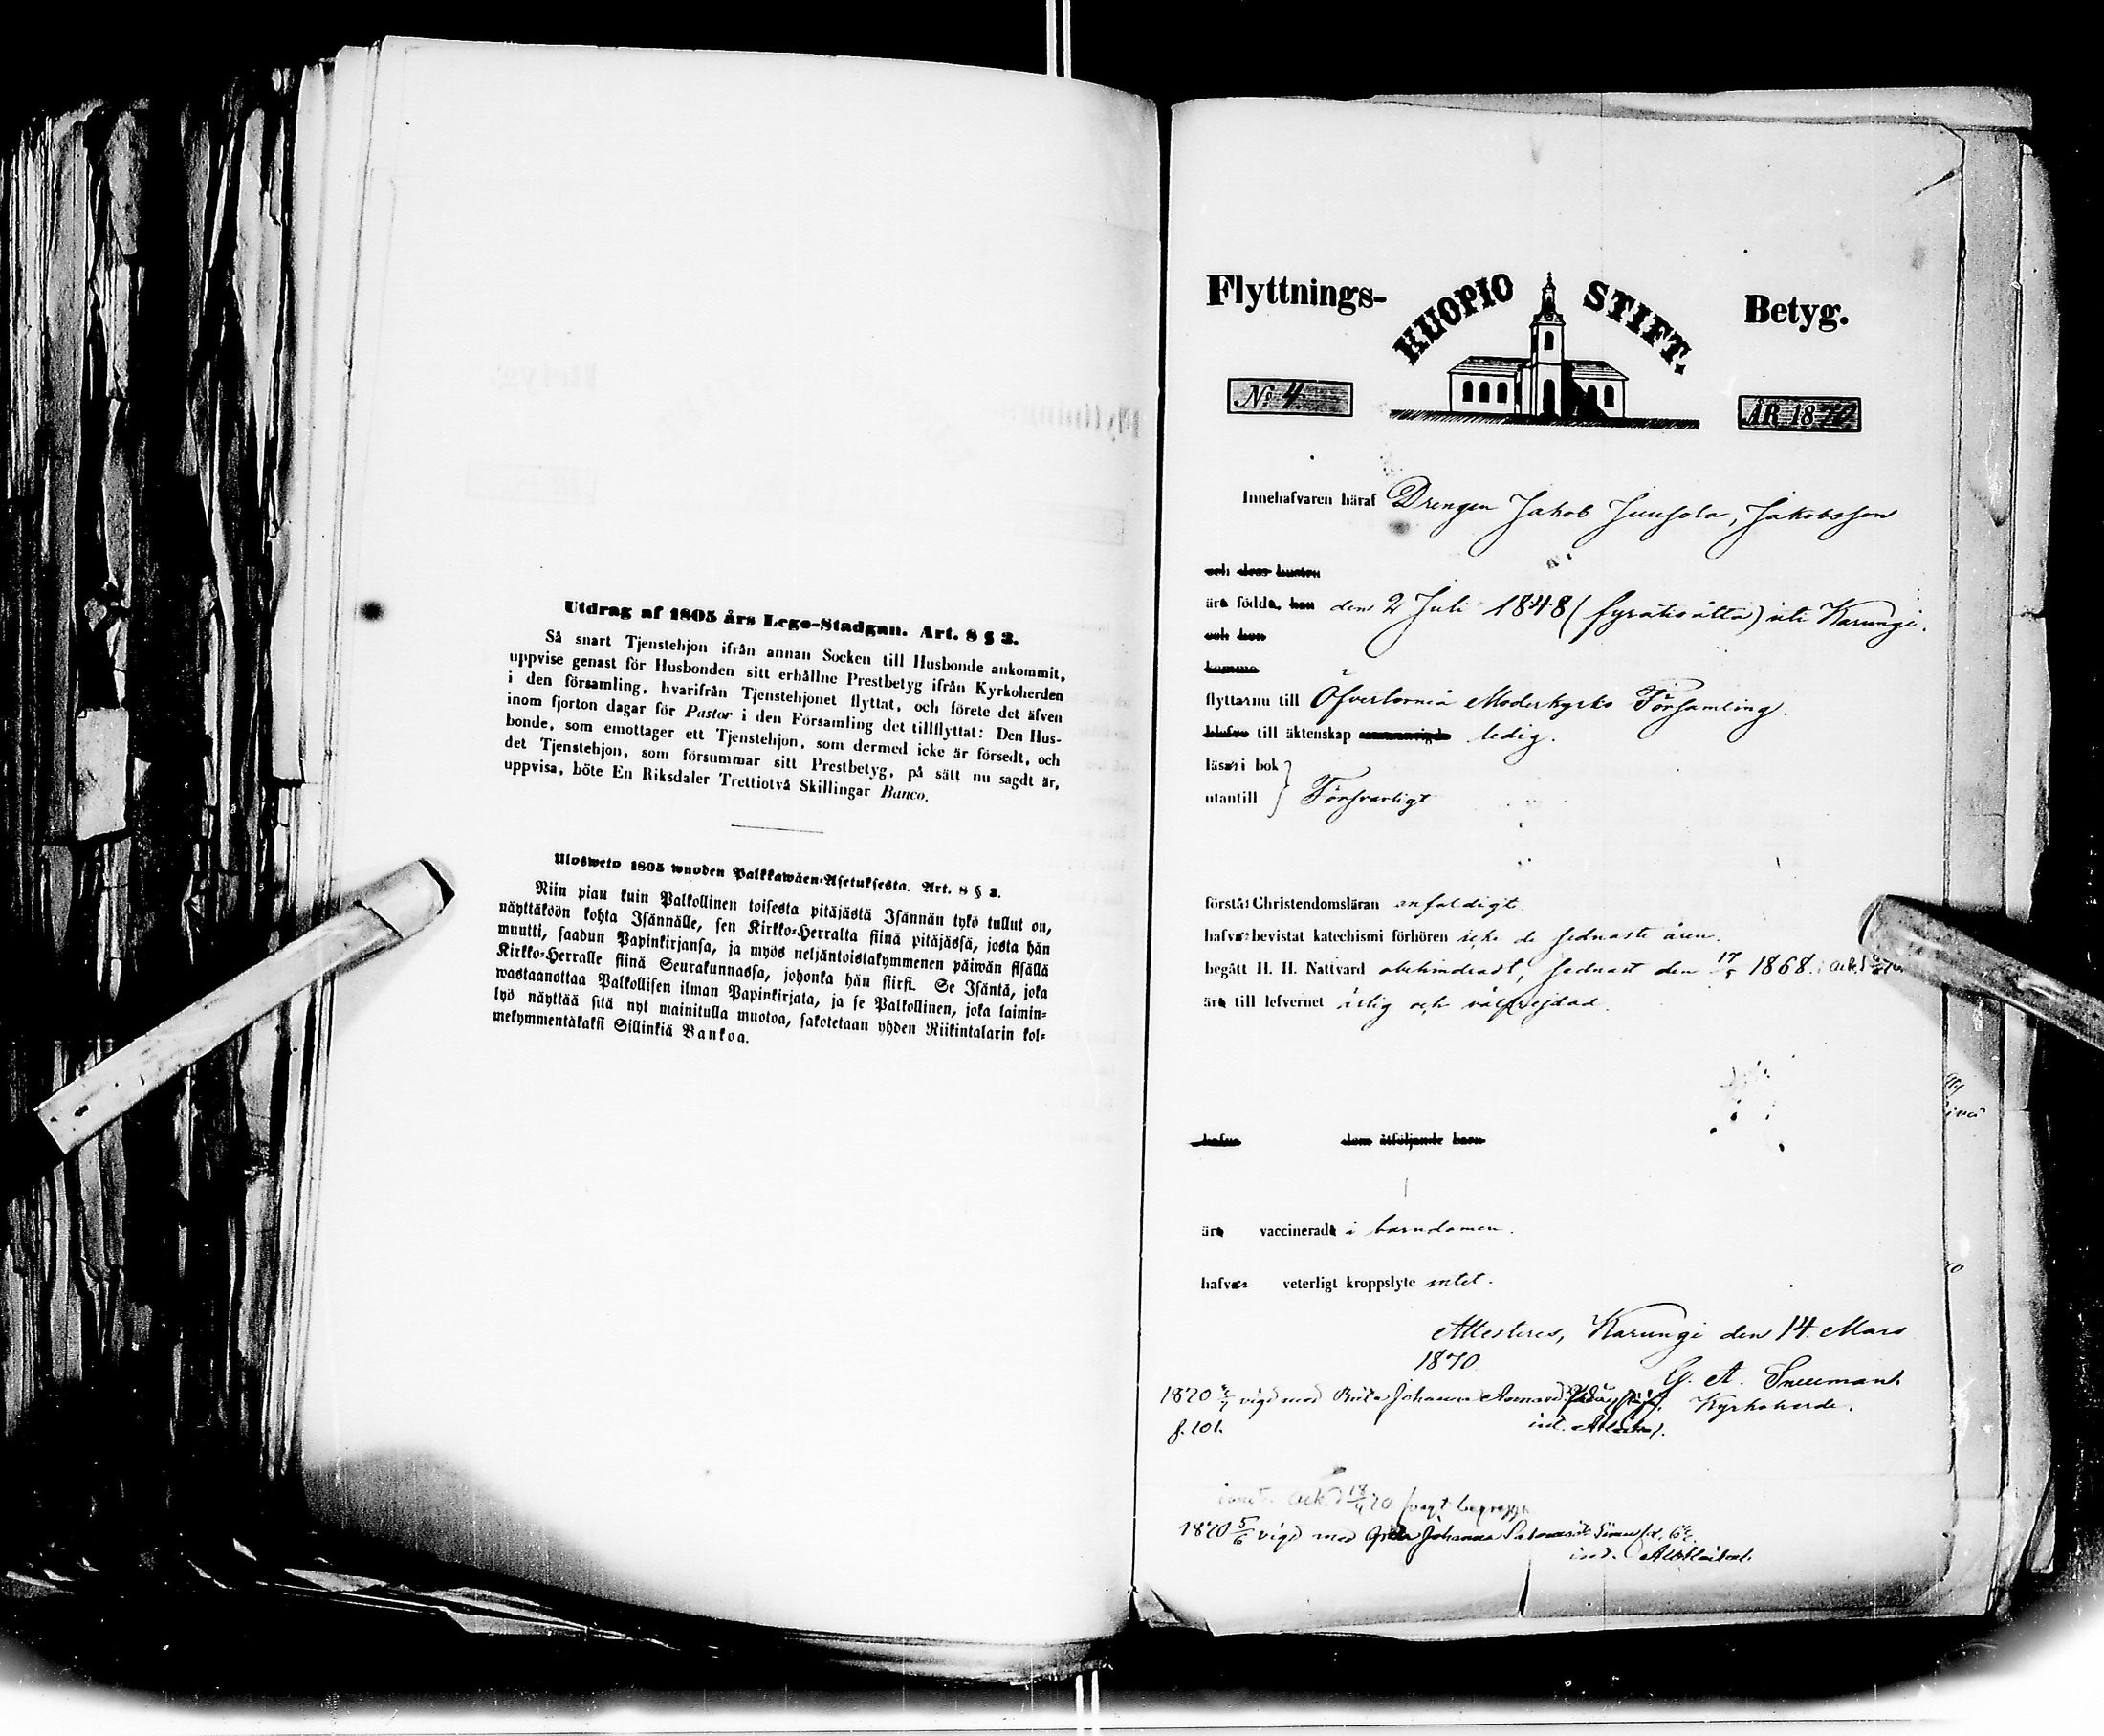 Utdrag af 1805 års Lego-Stadgan. Art. 8 § 3.
Så snart Tjenstehjon ifrån annan Socken till Husbonde ankommit,
uppvise genast för Husbonden sitt erhållne Prestbetyg ifrån Kyrkoherden
i den församling, hvarifrån Tjenstehjonet flyttat, och förete det äfven
inom fjorton dagar för Pastor i den Församling det tillflyttat: Den Hus-
bonde, som emottager ett Tjenstehjon, som dermed icke är försedt, och
det Tjenstehjon, som försummar sitt Prestbetyg, på sätt nu sagdt är,
uppvisa, böte En Riksdaler Trettiotvå Skillingar Banco.
Ulosweto 1805 wuoden Palkkawäen-Asetuksesta. Art. 8 § 3.
Niin piau kuin Palkollinen toisesta pitäjästä Isännän tykö tullut on,
näyttäköön kohta Isännälle, sen Kirkko-Herralta siinä pitäjässä, josta hän
muutti, saadun Papinkirjansa, ja myös neljäntoistakymmenen päiwän sisällä
Kirkko-Herralle siinä Seurakunnassa, johonka hän siirsi. Se Isäntä, joka
wastaanottaa Palkollisen ilman Papinkirjata, ja se Palkollinen, joka laimin-
lyö näyttää sitä nyt mainitulla muotoa, sakotetaan yhden Riikintalarin kol-
mekymmentäkaksi Sillinkiä Bankoa.
Flyttnings- KUOPIO STIFT. Betyg.
No 4 ÅR 1870
Innehafvaren häraf Drengen Jakob Juusola, Jakobsson
och dess hustru
äro födda, han den 2 Juli 1848 (fyratio åtta) uti Karungi.
och hon
komma
flyttarnu till Öfvertorneå Moderkyrko Församling.
hlefvo till äktenskap ledig.
läsa i bok
utantill Försvarligt
förstår Christendomsläran enfaldigt.
hafva bevistat katechismi förhören icke de sednaste åren.
begått H. H. Nattvard obehindradt, sednast den 17/5 1868.
äro till lefvernet ärlig och välfrejdad.
hafva dem åtföljande barn
äro vaccinerade i barndomen.
hafva veterligt kroppslyte intet.
Attesteras, Karungi den 14 Mars
1870.
G. A. Snellman.
1870 vigd med Johanna
Kyrkoherde.
f. 101.
1870 5/6 vigd med Greta Johanna